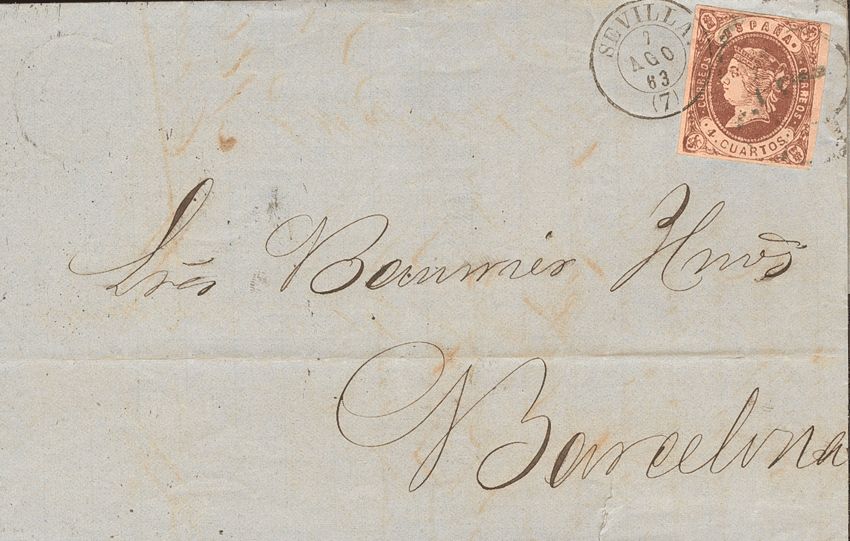 SEVILLA
7
AGO
63
(7)
ESPAÑA
CORREOS CORREOS
4 CUARTOS
Sres Hnos
Barcelona